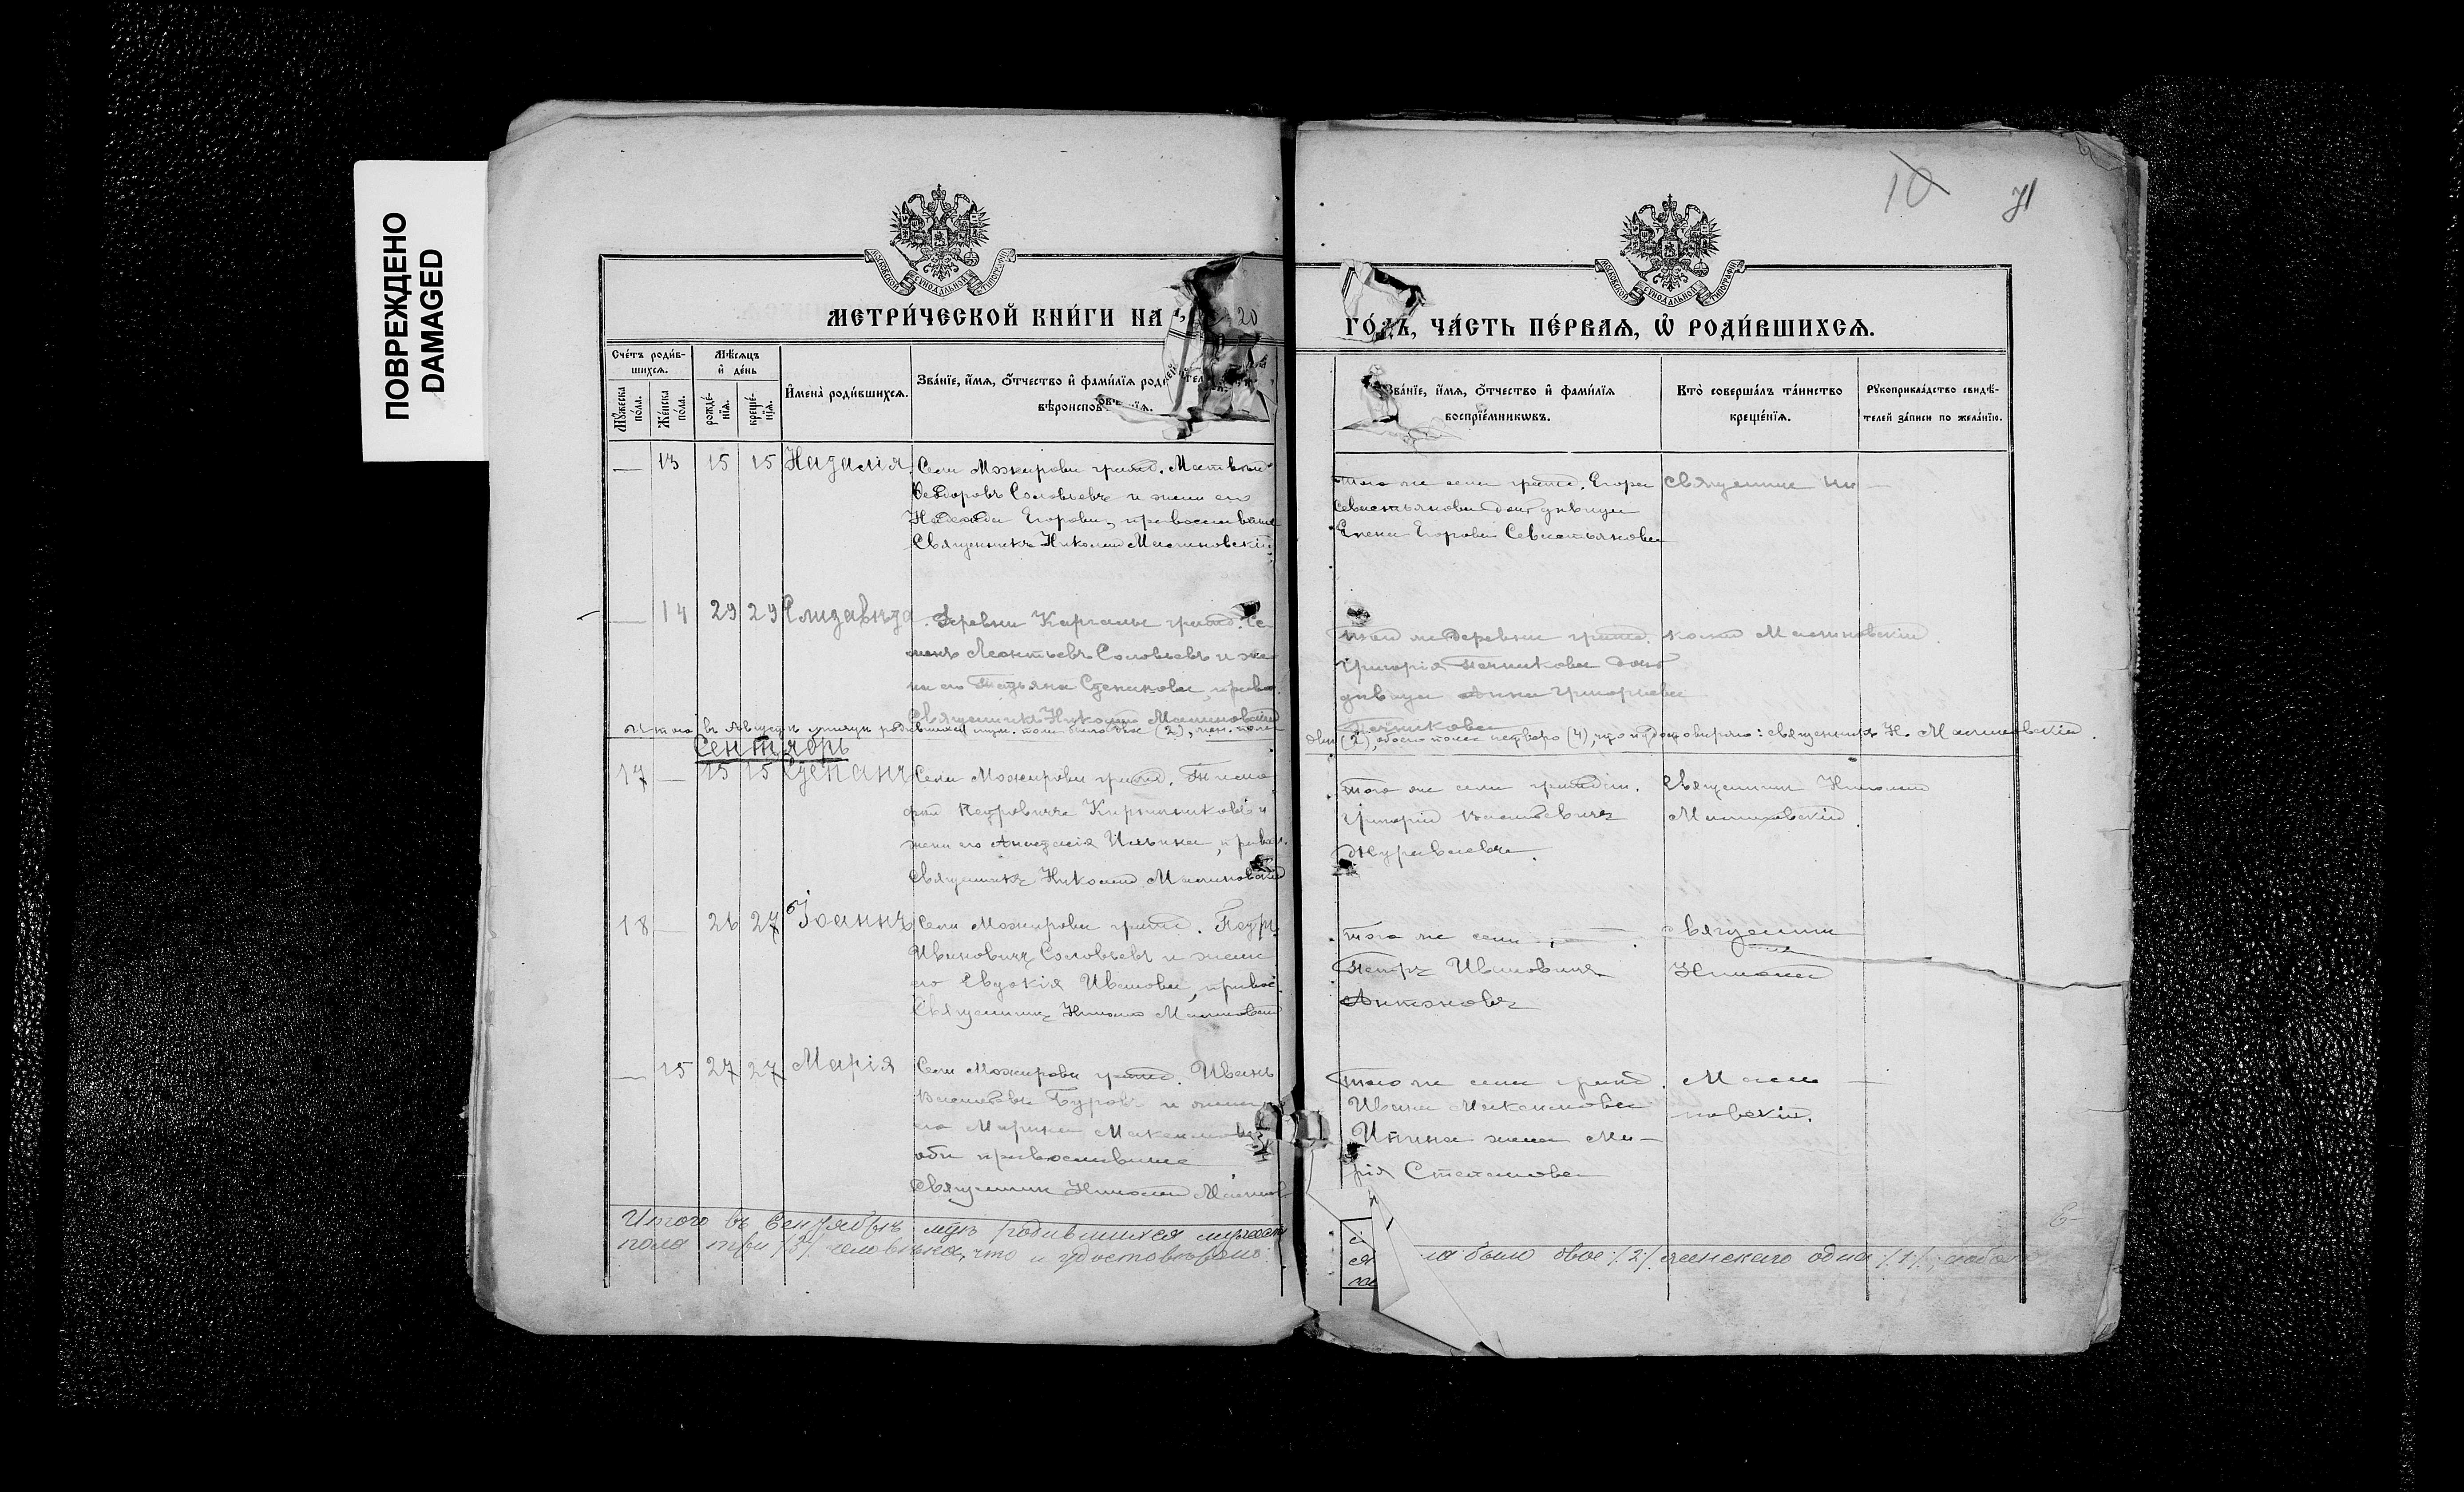 ПОВРЕЖДЕНО
DAMAGED
10
71
МОСКОВСКОЙ СѴНОДАЛЬНОЙ ТИПОГРАФІИ
МОСКОВСКОЙ СѴНОДАЛЬНОЙ ТИПОГРАФІИ
МЕТРИ́ЧЕСКОЙ КНИ́ГИ НА 20
ГО́ДЪ, ЧА́СТЬ ПЕ́РВАѦ, Ѡ҆ РОДИ́ВШИХСѦ.
Сче́тъ роди́в-
шихсѧ.
Мꙋ́жеска по́ла.
Же́нска по́ла.
Мѣ́сѧцъ
и҆ де́нь
рожде́-
нїѧ.
креще́-
нїѧ.
И҆мена̀ роди́вшихсѧ.
Зва́нїе, и҆́мѧ, ѻ҆́тчество и҆ фами́лїѧ
вѣроиспов
Зва́нїе, и҆́мѧ, ѻ҆́тчество и҆ фами́лїѧ
воспрїе́мникѡвъ.
Кто̀ соверша́лъ та́инство
креще́нїѧ.
Рꙋкоприкла́дство свидѣ́-
телей за́писи по жела́нїю.
— 13 15 15 Наталія
Села Можарова гражд. Матвей
Ѳедоровъ Соловьевъ и жена его
Надежда Егорова, православные
Священникъ Николай Малиновскій
того же села гражд. Егора
Севастьянова дочь дѣвица
Елена Егорова Севастьянова
Священникъ Ни—
— 14 29 29 Елизавета
Деревни Каргалы гражд. Се-
менъ Леонтьевъ Соловьевъ и же-
на его Татьяна Степанова, правос.
Священникъ Николай Малиновскій
той же деревни гражд.
Григорія Печникова дочь
дѣвица Анна Григорьева
Печникова
колай Малиновскій.
Итого въ Августѣ мѣсяцѣ родившихся муж. пола было два (2), жен. пола
два (2), обоего пола четверо (4), что и удостовѣряю: священникъ Н. Малиновскій.
Сентябрь
17 — 15 15 Степанъ
Села Можарова гражд. Тимо-
фей Петровичъ Кирпичниковъ и
жена его Анастасія Ильина, правос.
Священникъ Николай Малиновскій
того же села гражд.
Григорій Васильевичъ
Журавлевъ.
Священникъ Николай
Малиновскій.
18 — 26 27 Іоаннъ
Села Можарова гражд. Петръ
Ивановичъ Соловьевъ и жена
его Евдокія Иванова, правос.
Священникъ Николай Малиновскій
того же села
Петръ Ивановичъ
Антоновъ
Священникъ
Николай
— 15 27 27 Марія
Села Можарова гражд. Иванъ
Васильевъ Буровъ и жена
его Марина Максимова
оба православные
Священникъ Николай Малинов
того же села гражд.
Ивана Максимова
жена Ма-
рія Степанова
Мали—
новскій.
Итого въ Сентябрѣ мцѣ родившихся мужеска
ла было двое /2/ женскаго одна /1/, обоего
пола три /3/ человѣка, что и удостовѣряю: